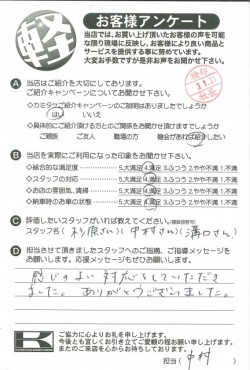 軽
お客様アンケート
当店では、お買い上げ頂いたお客様の声を可能
な限り現場に反映し、お客様により良い商品と
サービスを提供する事に努めています。
大変お手数ですが是非お声をお聞かせ下さい。
A 当店はご紹介を大切にしております。
ご紹介キャンペーンについてお聞かせ下さい。
・カミタウンご紹介キャンペーンのご説明はありましたでしょうか
はい いいえ
・具体的にご紹介頂ける方との ご関係をお聞かせ頂けますでしょうか
ご親族 ご友人 職場の方 機会があれば紹介したい
B 当店を実際にご利用になった印象をお聞かせ下さい。
・総合的な満足度 5.大満足 4.満足 3.ふつう 2.やや不満 1.不満
・スタッフの対応 5.大満足 4.満足 3.ふつう 2.やや不満 1.不満
・お店の雰囲気、清掃 5.大満足 4.満足 3.ふつう 2.やや不満 1.不満
・納車時のお車の状態 5.大満足 4.満足 3.ふつう 2.やや不満 1.不満
C 評価したいスタッフがいれば教えてください。(複数回答可)
スタッフ名( 杉原さん )( 中村さん )( 溝口さん )
D 担当させて頂きましたスタッフへのご指摘、ご指導メッセージを
お願いします。応援メッセージもぜひお願いします。
感じのよい対応をしていただき
ました。ありがとうございました。
K
ご協力に心よりお礼を申し上げます。
今後とも宜しくお引き立てご愛顧の程お願い申し上げます。
またのご来店を心からお待ちしております。
担当( 中村 )